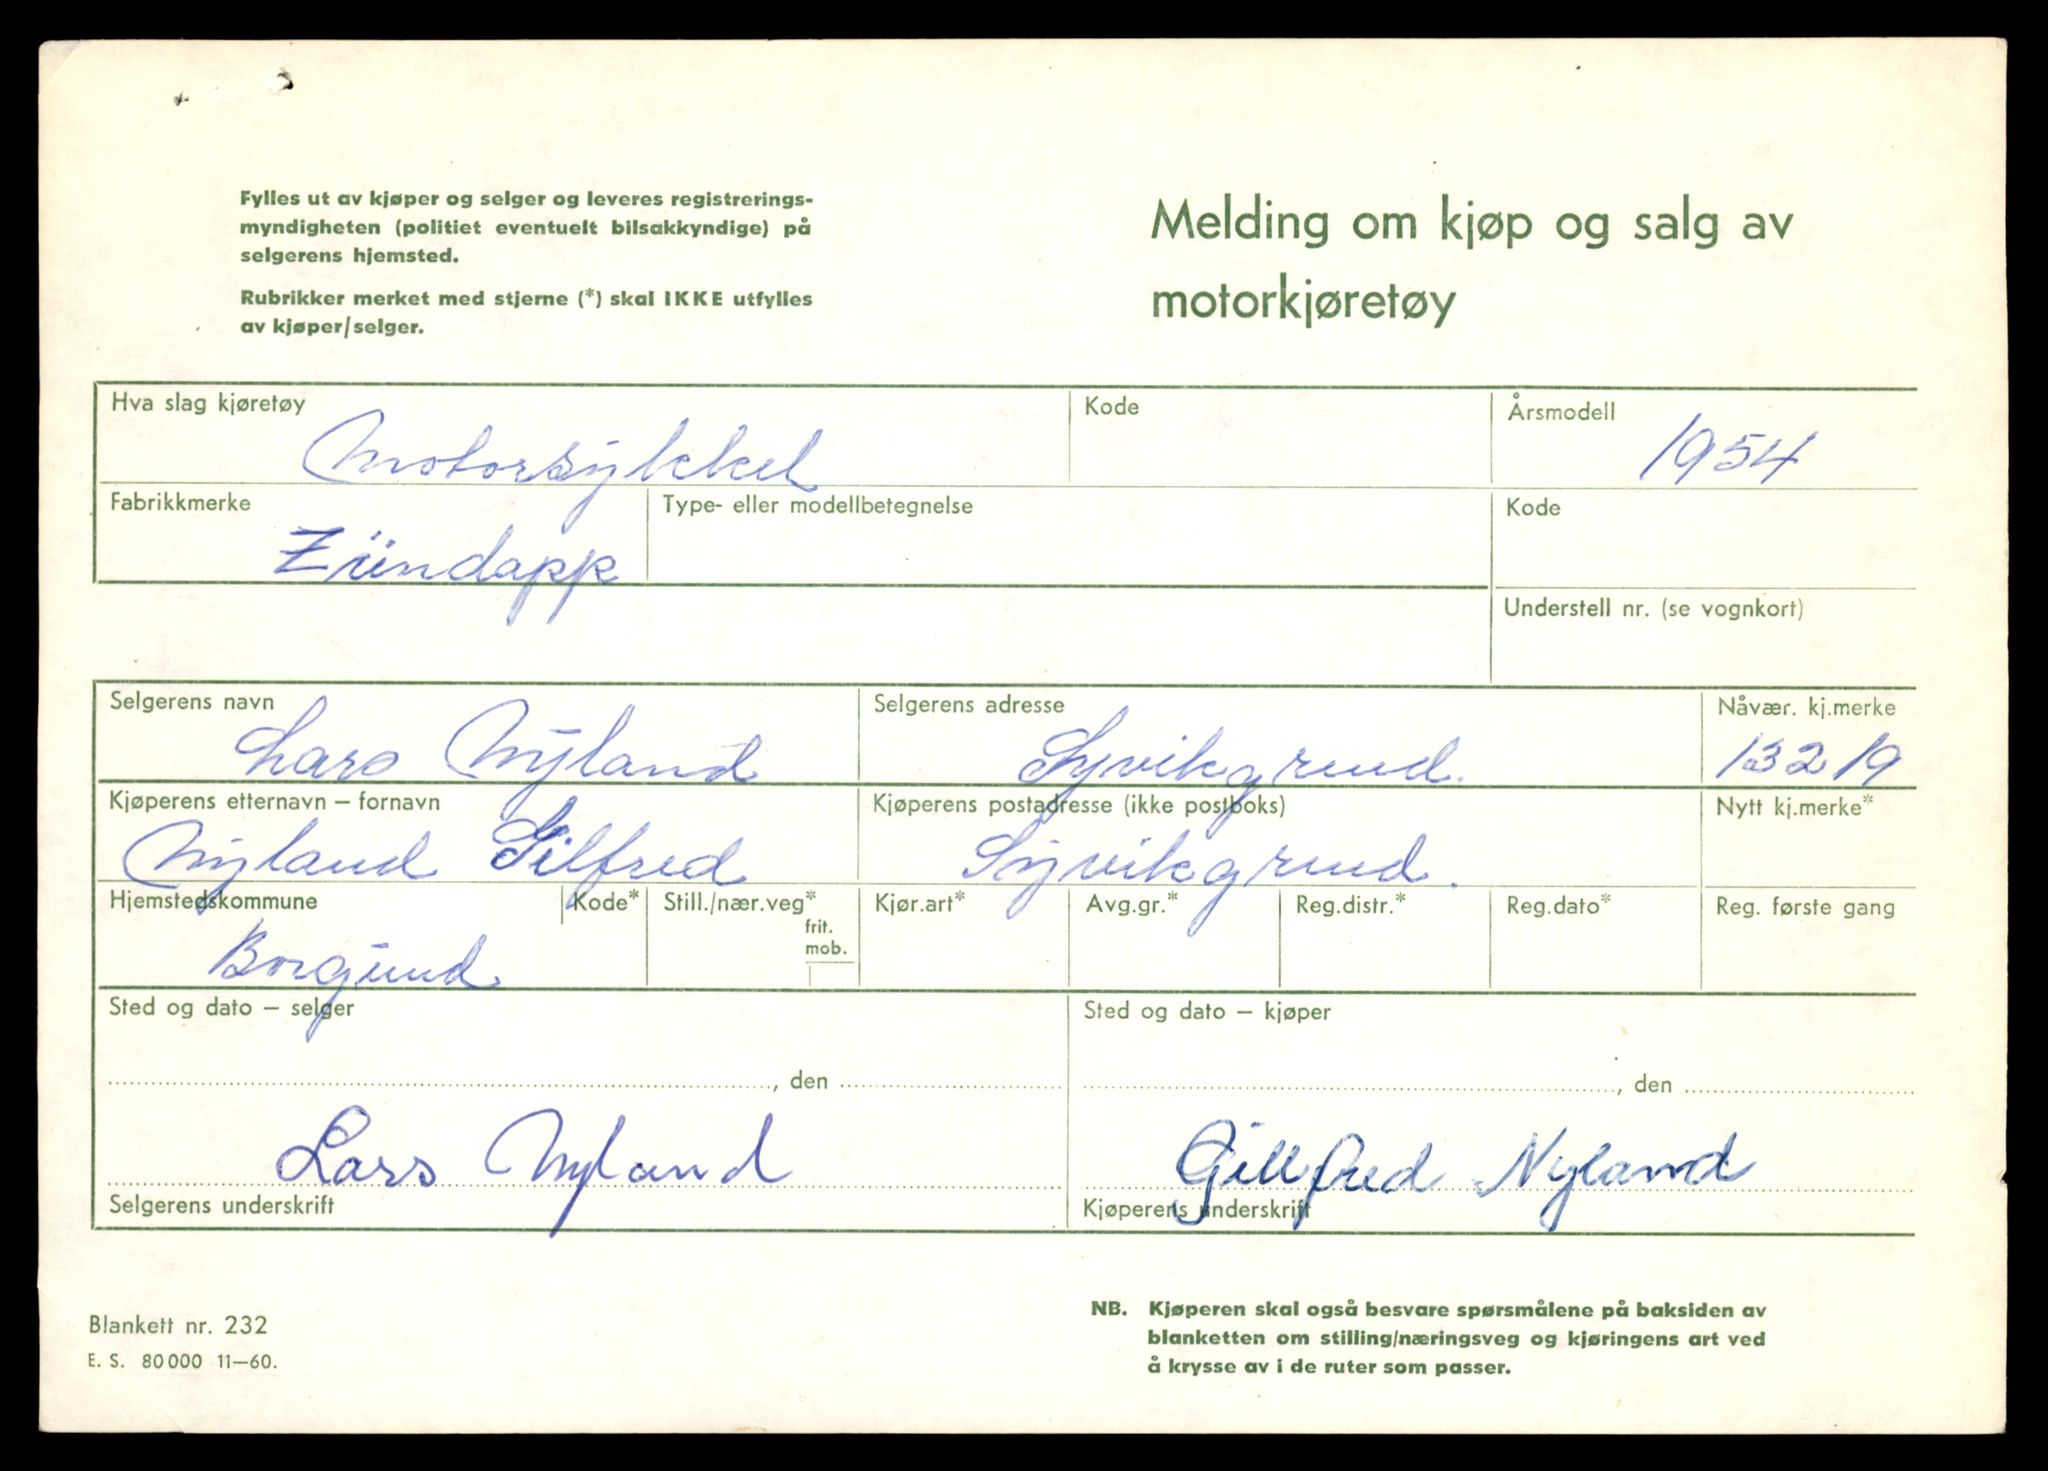 Fylles ut av kjøper og selger og leveres registrerings-
myndigheten (politiet eventuelt bilsakkyndige) på
selgerens hjemsted.
Rubrikker merket med stjerne (*) skal IKKE utfylles
av kjøper/selger.
Melding om kjøp og salg av
motorkjøretøy
Hva slag kjøretøy
Motorsykkel
Kode
Årsmodell
1954
Fabrikkmerke
Zündapp
Type- eller modellbetegnelse
Kode
Understell nr. (se vognkort)
Selgerens navn
Lars Nyland
Selgerens adresse
Syvikgrend.
Nåvær. kj.merke
13219
Kjøperens etternavn – fornavn
Nyland Gilfred
Kjøperens postadresse (ikke postboks)
Syvikgrend.
Nytt kj.merke*
Hjemstedskommune
Borgund
Kode*
Still./nær.veg*
frit.
mob.
Kjør.art*
Avg.gr.*
Reg.distr.*
Reg.dato*
Reg. første gang
Sted og dato – selger
, den
Lars Nyland
Selgerens underskrift
Sted og dato – kjøper
, den
Gillfred Nyland
Kjøperens underskrift
Blankett nr. 232
E. S. 80000 11–60.
NB. Kjøperen skal også besvare spørsmålene på baksiden av
blanketten om stilling/næringsveg og kjøringens art ved
å krysse av i de ruter som passer.